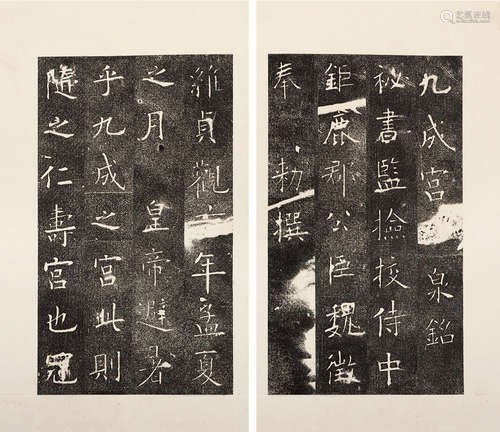 九成宮 泉銘
秘書監撿挍侍中
鉅鹿郡公臣魏徵
奉 勅撰
維貞觀六年孟夏
之月 皇帝避暑
乎九成之宮此則
隨之仁壽宮也冠